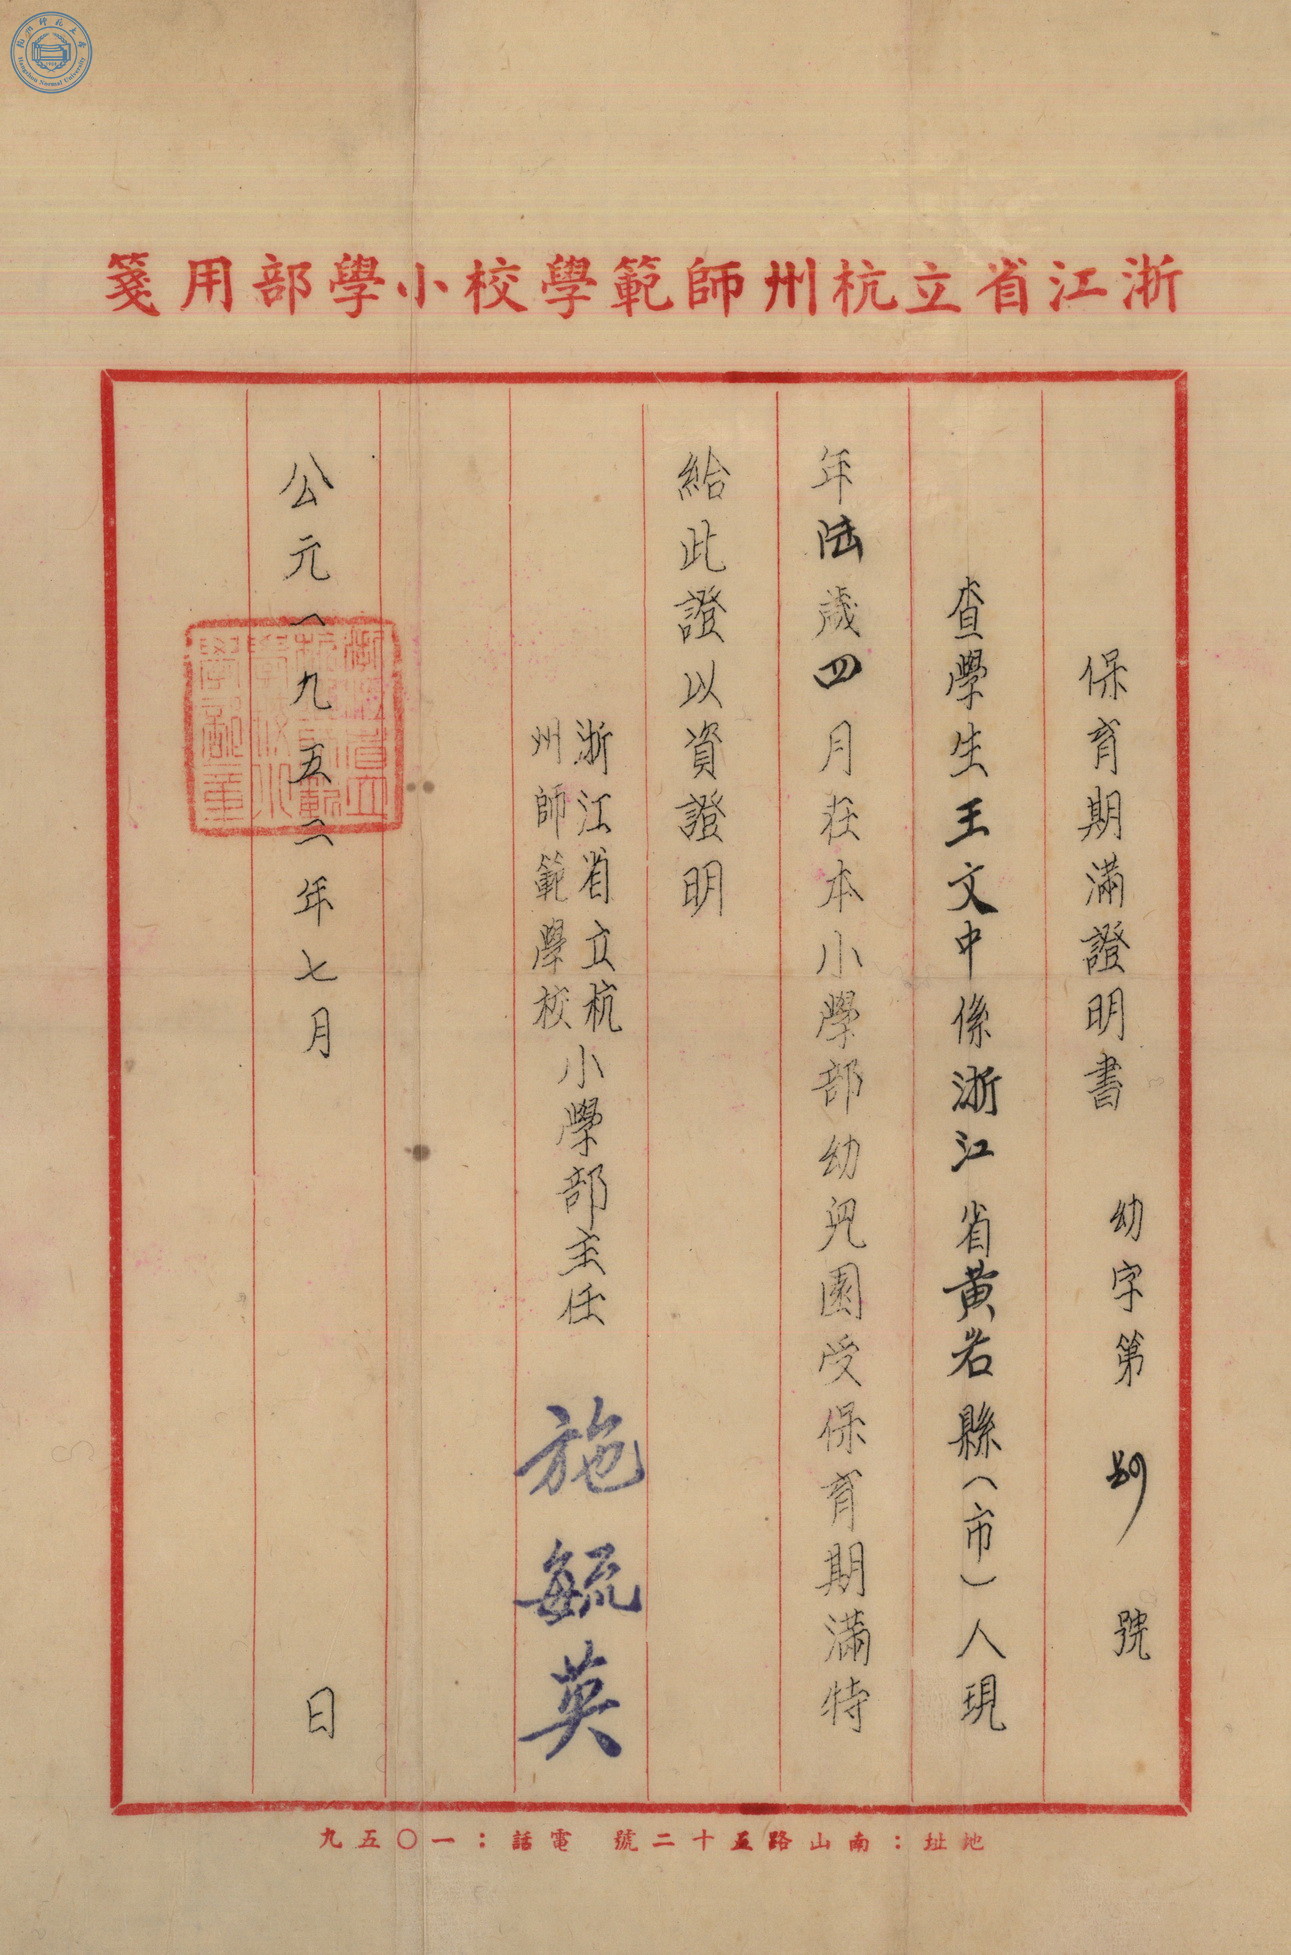 浙江省立杭州師範學校小學部用箋
保育期滿證明書
幼字第 號
查學生王文中係浙江省黃岩縣(市)人現
年陆歲四月在本小學部幼兒園受保育期滿特
給此證以資證明
浙江省立杭
州師範學校
小學部主任
施毓英
公元一九五二年七月 日
浙江省立
杭州師範
學校小
學部章
地址:南山路五十二號 電話:一〇五九
杭州師範大學
Hangzhou Normal University